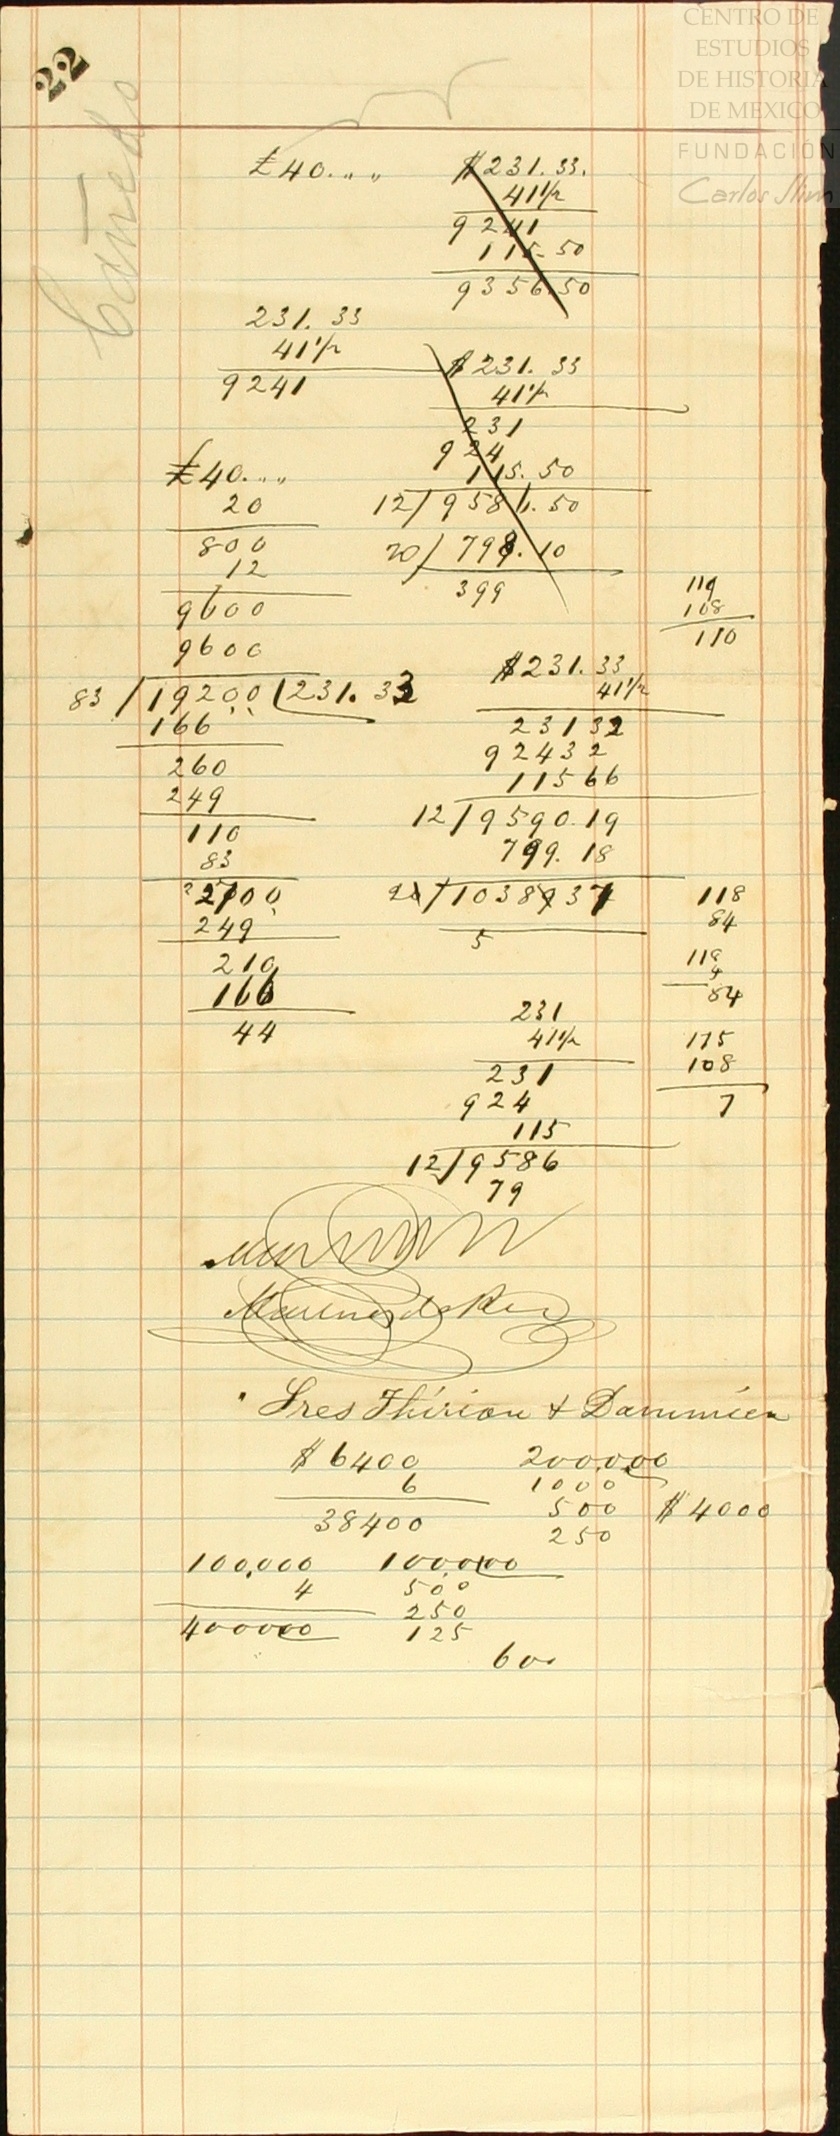 22
Cañedo
CENTRO DE
ESTUDIOS
DE HISTORIA
DE MEXICO
FUNDACIÓN
Carlos Slim
£40. „ „
$231.33.
41½
9241
115.50
9356.50
231.33
41½
9241
$231.33
41½
231
924
115.50
12/9586.50
20/798.10
399
£40. „ „
20
800
12
9600
9600
83/19200/231.33
166
260
249
110
83
2700
249
210
166
44
119
108
110
$231.33
41½
23132
92432
11566
12/9590.19
799.18
20/1038937
5
118
84
118
4
84
175
108
7
231
41½
231
924
115
12/9586
79
Sres Thirion & Dammien
$6400
6
38400
200,000
1000
500
250
$4000
100,000
4
400000
100,000
500
250
125
600